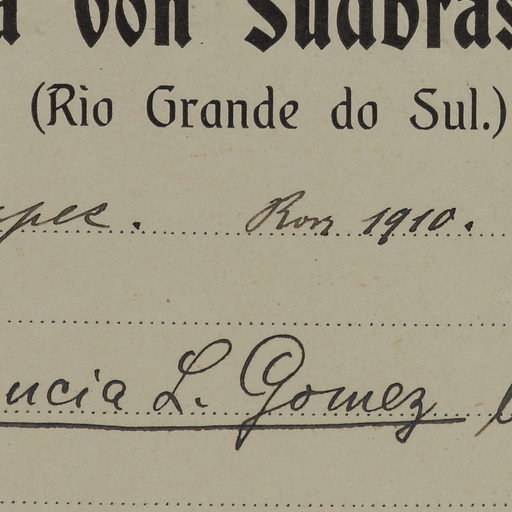 a von Südbras
(Rio Grande do Sul.)
1910.
ucia L. Gomez